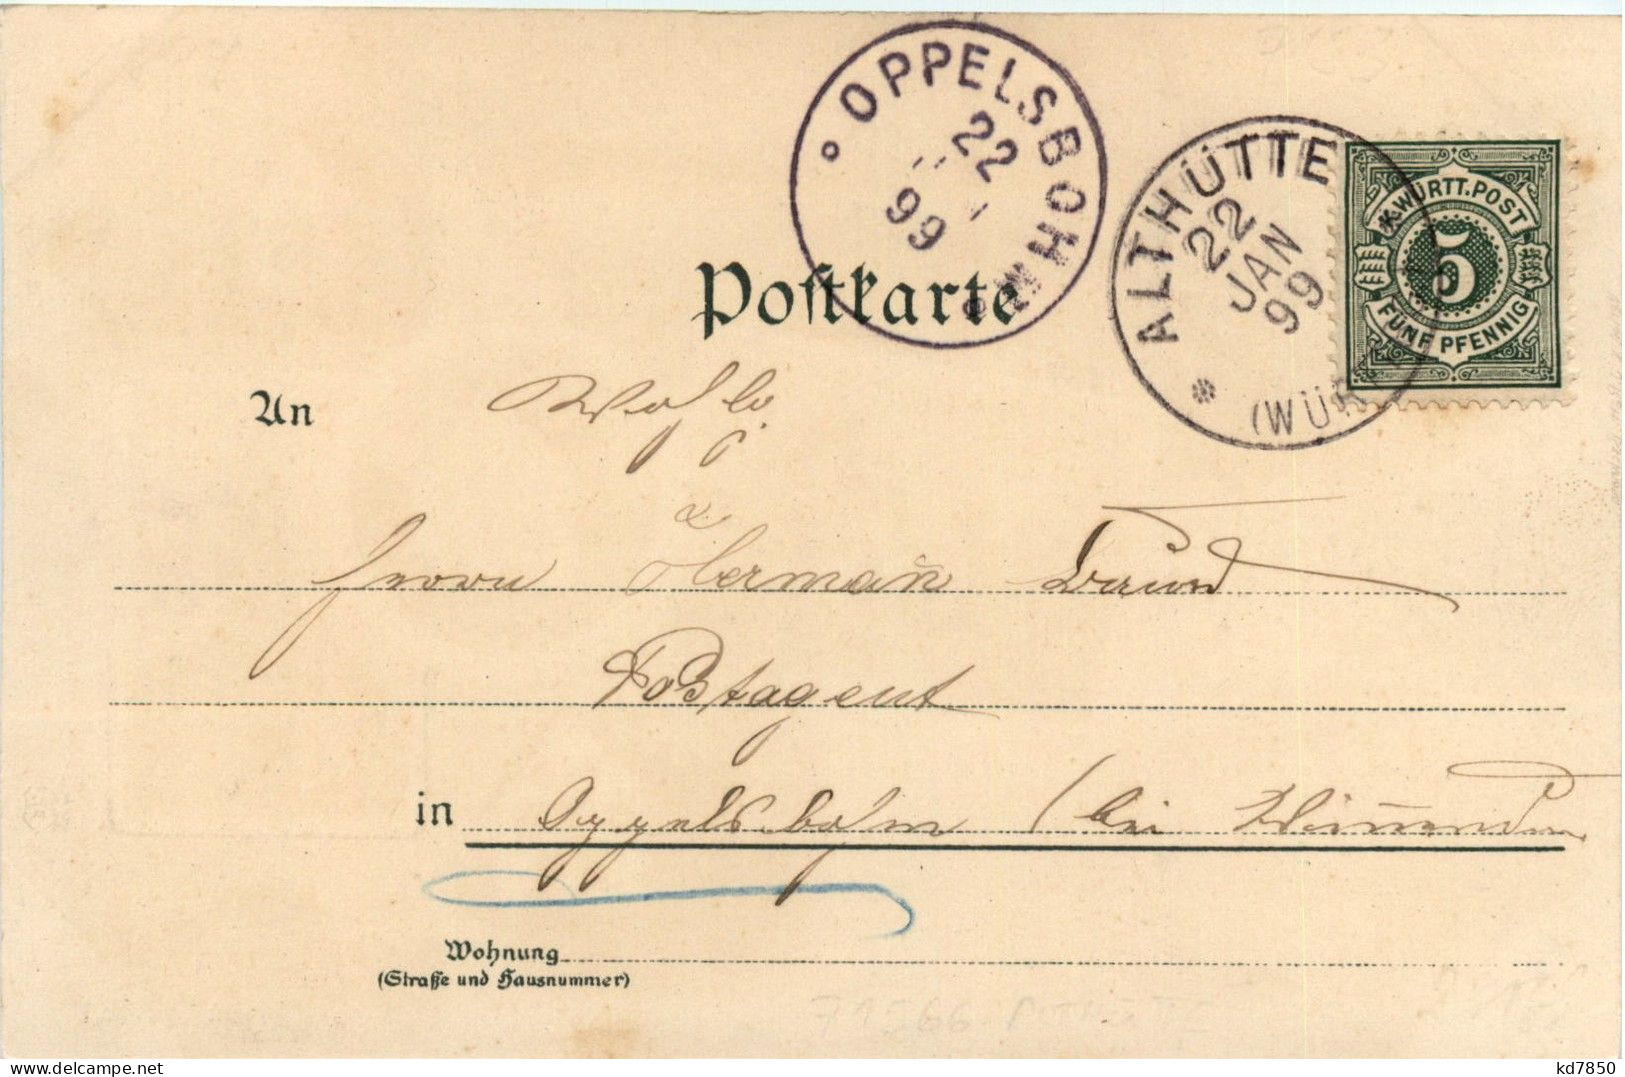 OPPELSBOHM
22
1
99
ALTHÜTTE
22
JAN
99
(WÜRTT
K.WÜRTT.POST
5
FÜNF PFENNIG
Postkarte
An Wohlg.
Herrn Obermann
Postagent
in Oppelsbohm (bei Winnenden
Wohnung
(Straße und Hausnummer)
kd7850